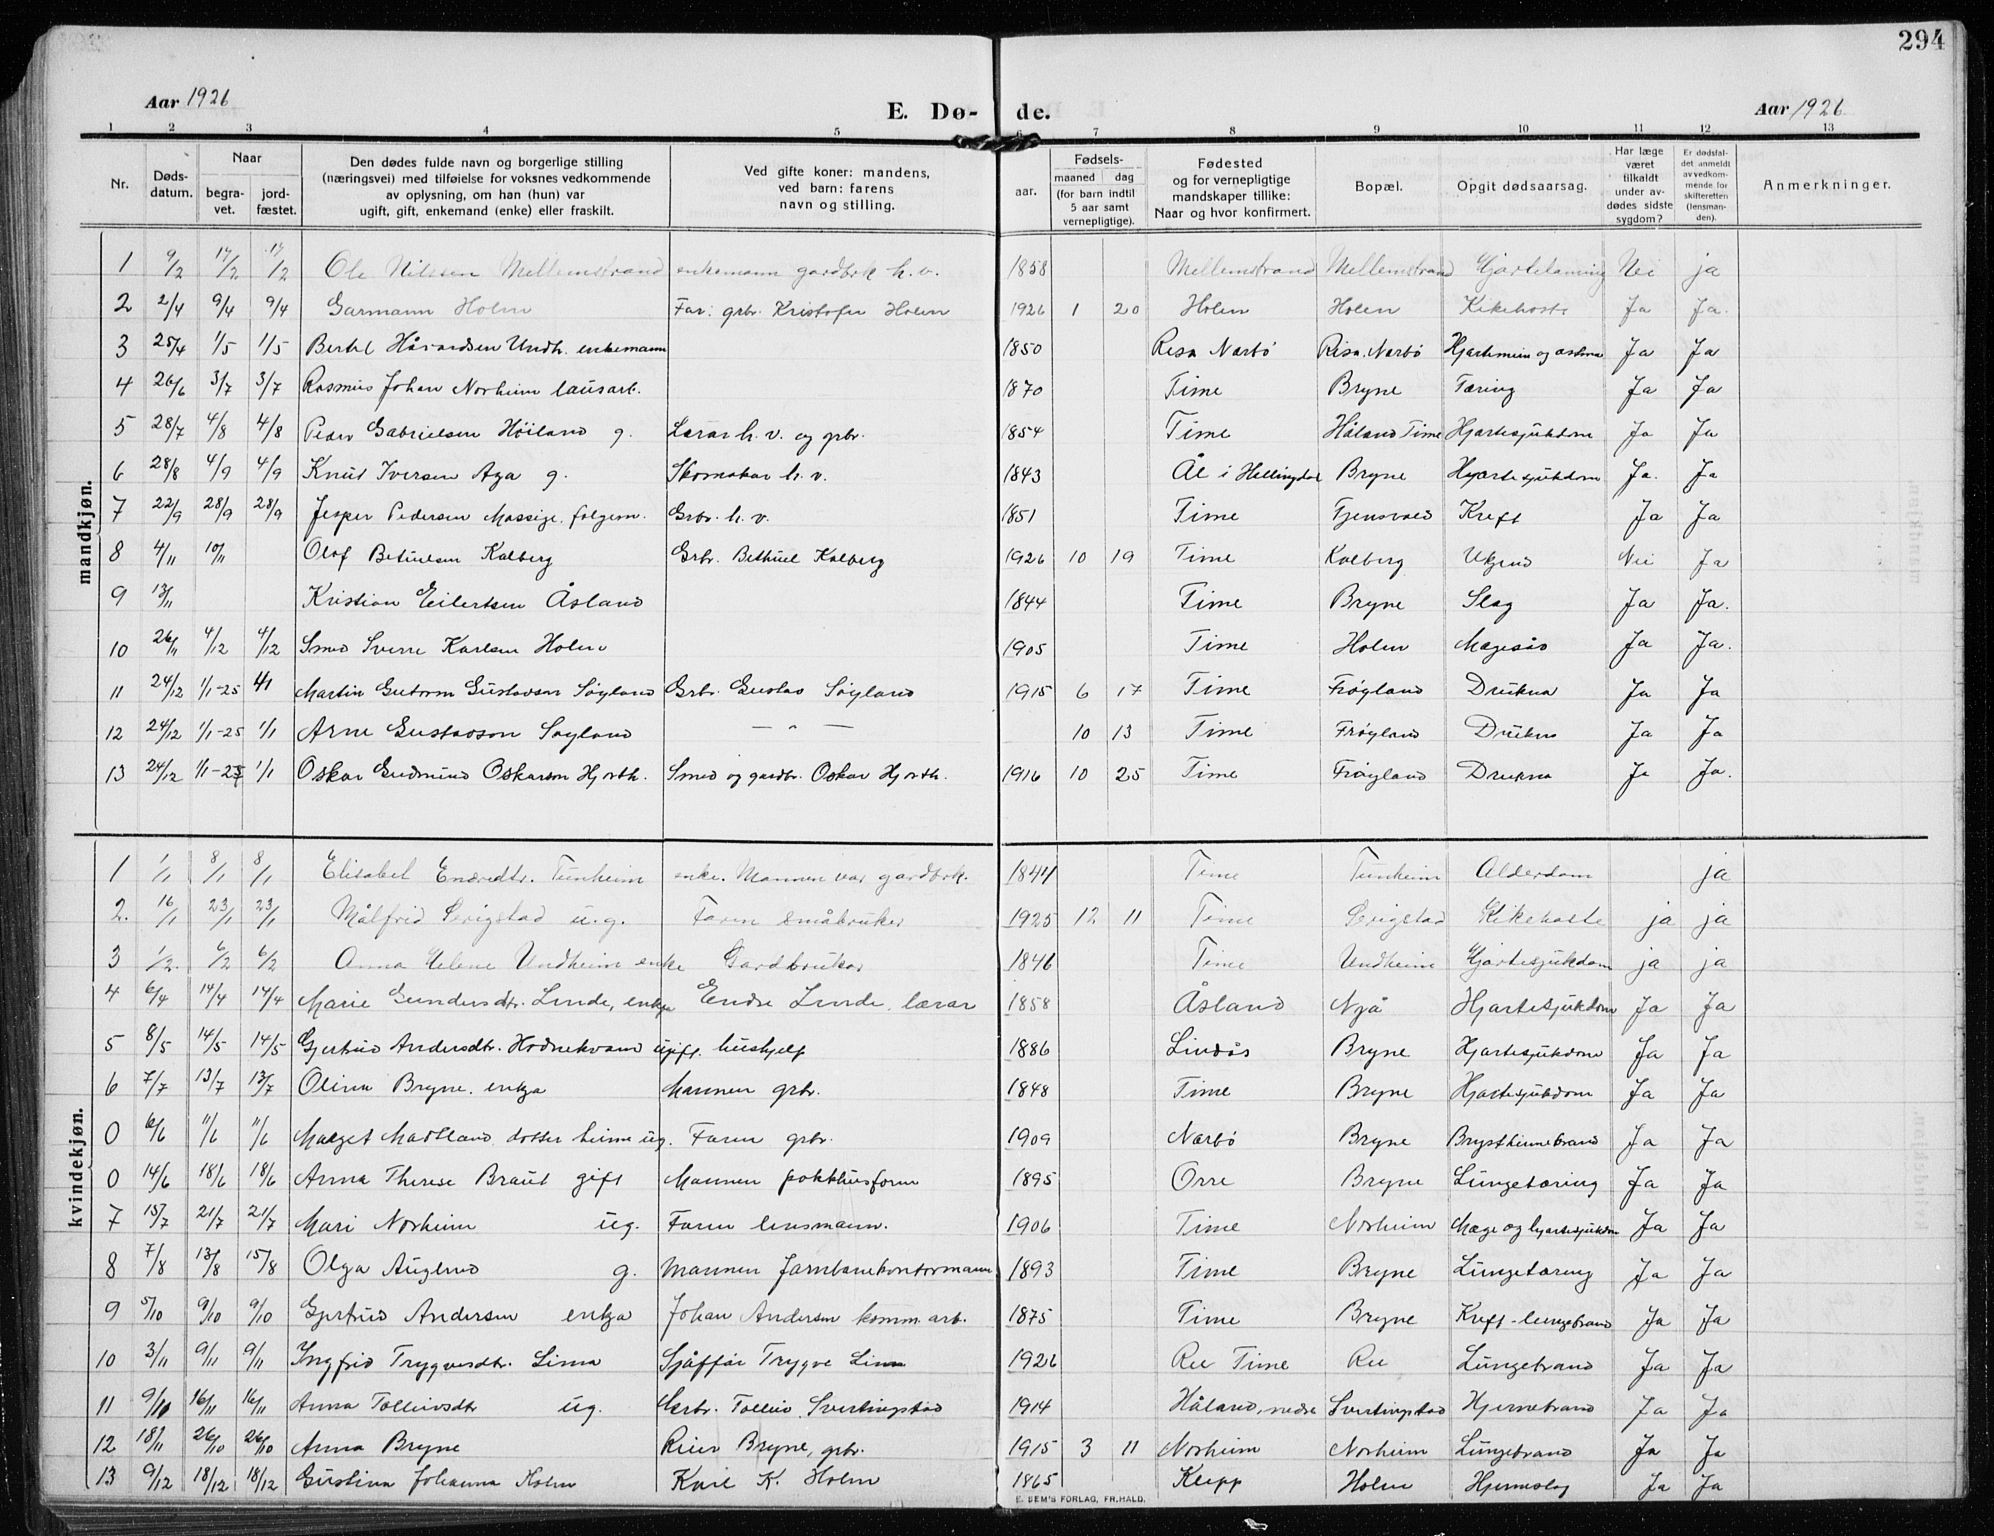 294
Aar 1926 E. Dø- de. Aar 1926
1 2 3 4 5 6 7 8 9 10 11 12 13
Nr. Dødsdatum. Naar begravet. jordfæstet. Den dødes fulde navn og borgerlige stilling (næringsvei) med tilføielse for voksnes vedkommende av oplysning, om han (hun) var ugift, gift, enkemand (enke) eller fraskilt. Ved gifte koner: mandens, ved barn: farens navn og stilling. aar. Fødsels- maaned dag (for barn indtil 5 aar samt vernepligtige). Fødested og for vernepligtige mandskaper tillike: Naar og hvor konfirmert. Bopæl. Opgit dødsaarsag. Har læge været tilkaldt under avdødes sidste sygdom? Er dødsfaldet anmeldt av vedkommende for skifteretten (lensmanden). Anmerkninger.
mandkjøn.
1 9/2 17/2 17/2 Ole Nilssen Mellemstrand enkemann gardbrk h.v. 1858 Mellemstrand Mellemstrand Hjartelaming Nei ja
2 2/4 9/4 9/4 Garmann Holen Far: grbr. Kristofer Holen 1926 1 20 Holen Holen Kikehoste Ja Ja.
3 25/4 1/5 1/5 Bertel Håvardsen Undh. enkemann 1850 Risa Narbø Risa, Narbø Hjartemein og astma Ja Ja
4 26/6 3/7 3/7 Rasmus Johan Norheim lausarb. 1870 Time Bryne Tæring Ja Ja
5 28/7 4/8 4/8 Peder Gabrielsen Høiland g. Lærar h.v. og grbr. 1854 Time Håland Time Hjartesjukdom Ja Ja
6 28/8 4/9 4/9 Knut Iversen Aga g. Skomakar h.v. 1843 Ål i Hallingdal Bryne Hjartesjukdom Ja. Ja
7 22/9 28/9 28/9 Jesper Pedersen Mossige, folgem. Grbr. h.v. 1851 Time Tjensvold Kreft Ja Ja
8 4/11 10/11 Olaf Betuelsen Kalberg Grbr. Bethuel Kalberg 1926 10 19 Time Kalberg Ukjend Nei Ja
9 13/11 Kristian Eilertsen Åsland 1844 Time Bryne Slag Ja Ja.
10 26/11 4/12 4/12 Smed Sverre Karlsen Holen 1905 Time Holen Magesår Ja Ja.
11 24/12 1/1-25 4/1 Martin Gutorm Gustavson Søyland Grbr. Gustav Søyland 1915 6 17 Time Frøyland Drukna Ja Ja
12 24/12 1/1-25 1/1 Arne Gustavson Søyland — " — 10 13 Time Frøyland Drukna Ja Ja
13 24/12 1/1-25 1/1 Oskar Gudmund Oskarson Hjorth. Smed og gardbr. Oskar Hjorth. 1916 10 25 Time Frøyland Drukna Ja Ja.
kvindekjøn.
1 1/1 8/1 8/1 Elisabet Enæredtr. Tunheim enke. Mannen var gardbrk. 1844 Time Tunheim Alderdom ja
2. 16/1 23/1 23/1 Målfrid Serigstad u.g. Faren småbruker 1925 12 11 Time Serigstad Kikehoste ja ja
3 1/2. 6/2 6/2 Anna Helene Undheim enke Gardbrukar 1846 Time Undheim Hjartesjukdom ja ja
4 6/4 14/4 14/4 Marie Gundersdtr. Linde, enkja Endre Linde, lærar 1858 Åsland Njå Hjartesjukdom Ja Ja
5 8/5 14/5 14/5 Gjertrud Andersdtr. Hodnekvam ugift. hushjelp 1886 Lindås Bryne Hjartesjukdom Ja Ja
6 7/7 13/7 13/7 Olina Bryne. enkja Mannen grbr. 1848 Time Bryne Hjartesjukdom Ja Ja
0 6/6 11/6 11/6 Matget Matland, dotter heime ug. Faren grbr. 1909 Narbø Bryne Brysthinnebrand Ja Ja
0 14/6 18/6 18/6 Anna Therese Braut gift Mannen pakkhusform 1895 Orre Bryne Lungetæring Ja Ja
7 15/7 21/7 21/7 Mari Norheim ug. Faren lensmann. 1906 Time Norheim Mage og hjartesjukdm Ja Ja
8 7/8 13/8 15/8 Olga Auglend g. Mannen jarnbanekontormann 1893 Time Bryne Lungetæring Ja Ja
9 5/10 9/10 9/10 Gjertrud Andersen enkja Johan Andersen komm. arb. 1875 Time Bryne Kreft-lungebrand Ja Ja
10 3/11 9/11 9/11 Ingfrid Trygvesdtr. Lima Sjåffør Trygve Lima 1926 Re Time Re Lungebrand Ja Ja
11 9/11 16/11 16/11 Anna Tolleivsdtr ug. Grbr. Tolleiv Svertingstad 1914 Håland, nedre Svertingstad Hjernebrand Ja Ja
12 18/11 26/10 26/10 Anna Bryne Reier Bryne, grbr. 1915 3 11 Norheim Norheim Lungebrand Ja Ja
13 9/12 18/12 18/12 Gustina Johanna Holen Karl K. Holen 1865 Klepp Holen Hjerneslag Ja Ja
E. SEM'S FORLAG, FR.HALD.